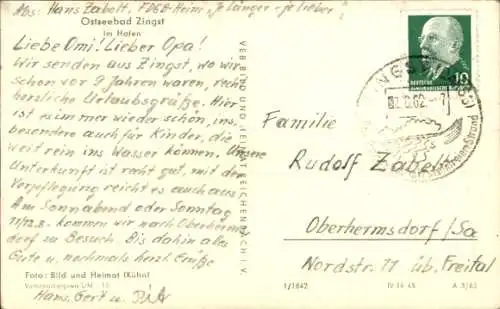 Abs: Hans Zabelt, FDGB-Heim „Je länger - je lieber"
Ostseebad Zingst
Im Hafen
Liebe Omi! Lieber Opa!
Wir senden aus Zingst, wo wir
schon vor 9 Jahren waren, recht
herzliche Urlaubsgrüße. Hier
ist es immer wieder schön, ins-
besondere auch für Kinder, die
weit rein ins Wasser können. Unsere
Unterkunft ist recht gut, mit der
Verpflegung reicht es auch aus.
Am Sonnabend oder Sonntag
11/12.8. kommen wir nach Oberherms
dorf zu Besuch. Bis dahin alles
Gute u. nochmals herzl. Grüße
Foto: Bild und Heimat (Kühn)
Hans, Gert u.
VEB BILD UND HEIMAT REICHENBACH I. V.
10
DEUTSCHE
DEMOKRATISCHE REPUBLIK
62
Familie
Rudolf Zabelt
Oberhermsdorf/Sa
Nordstr. 11 üb. Freital
1/1842
IV 14 45